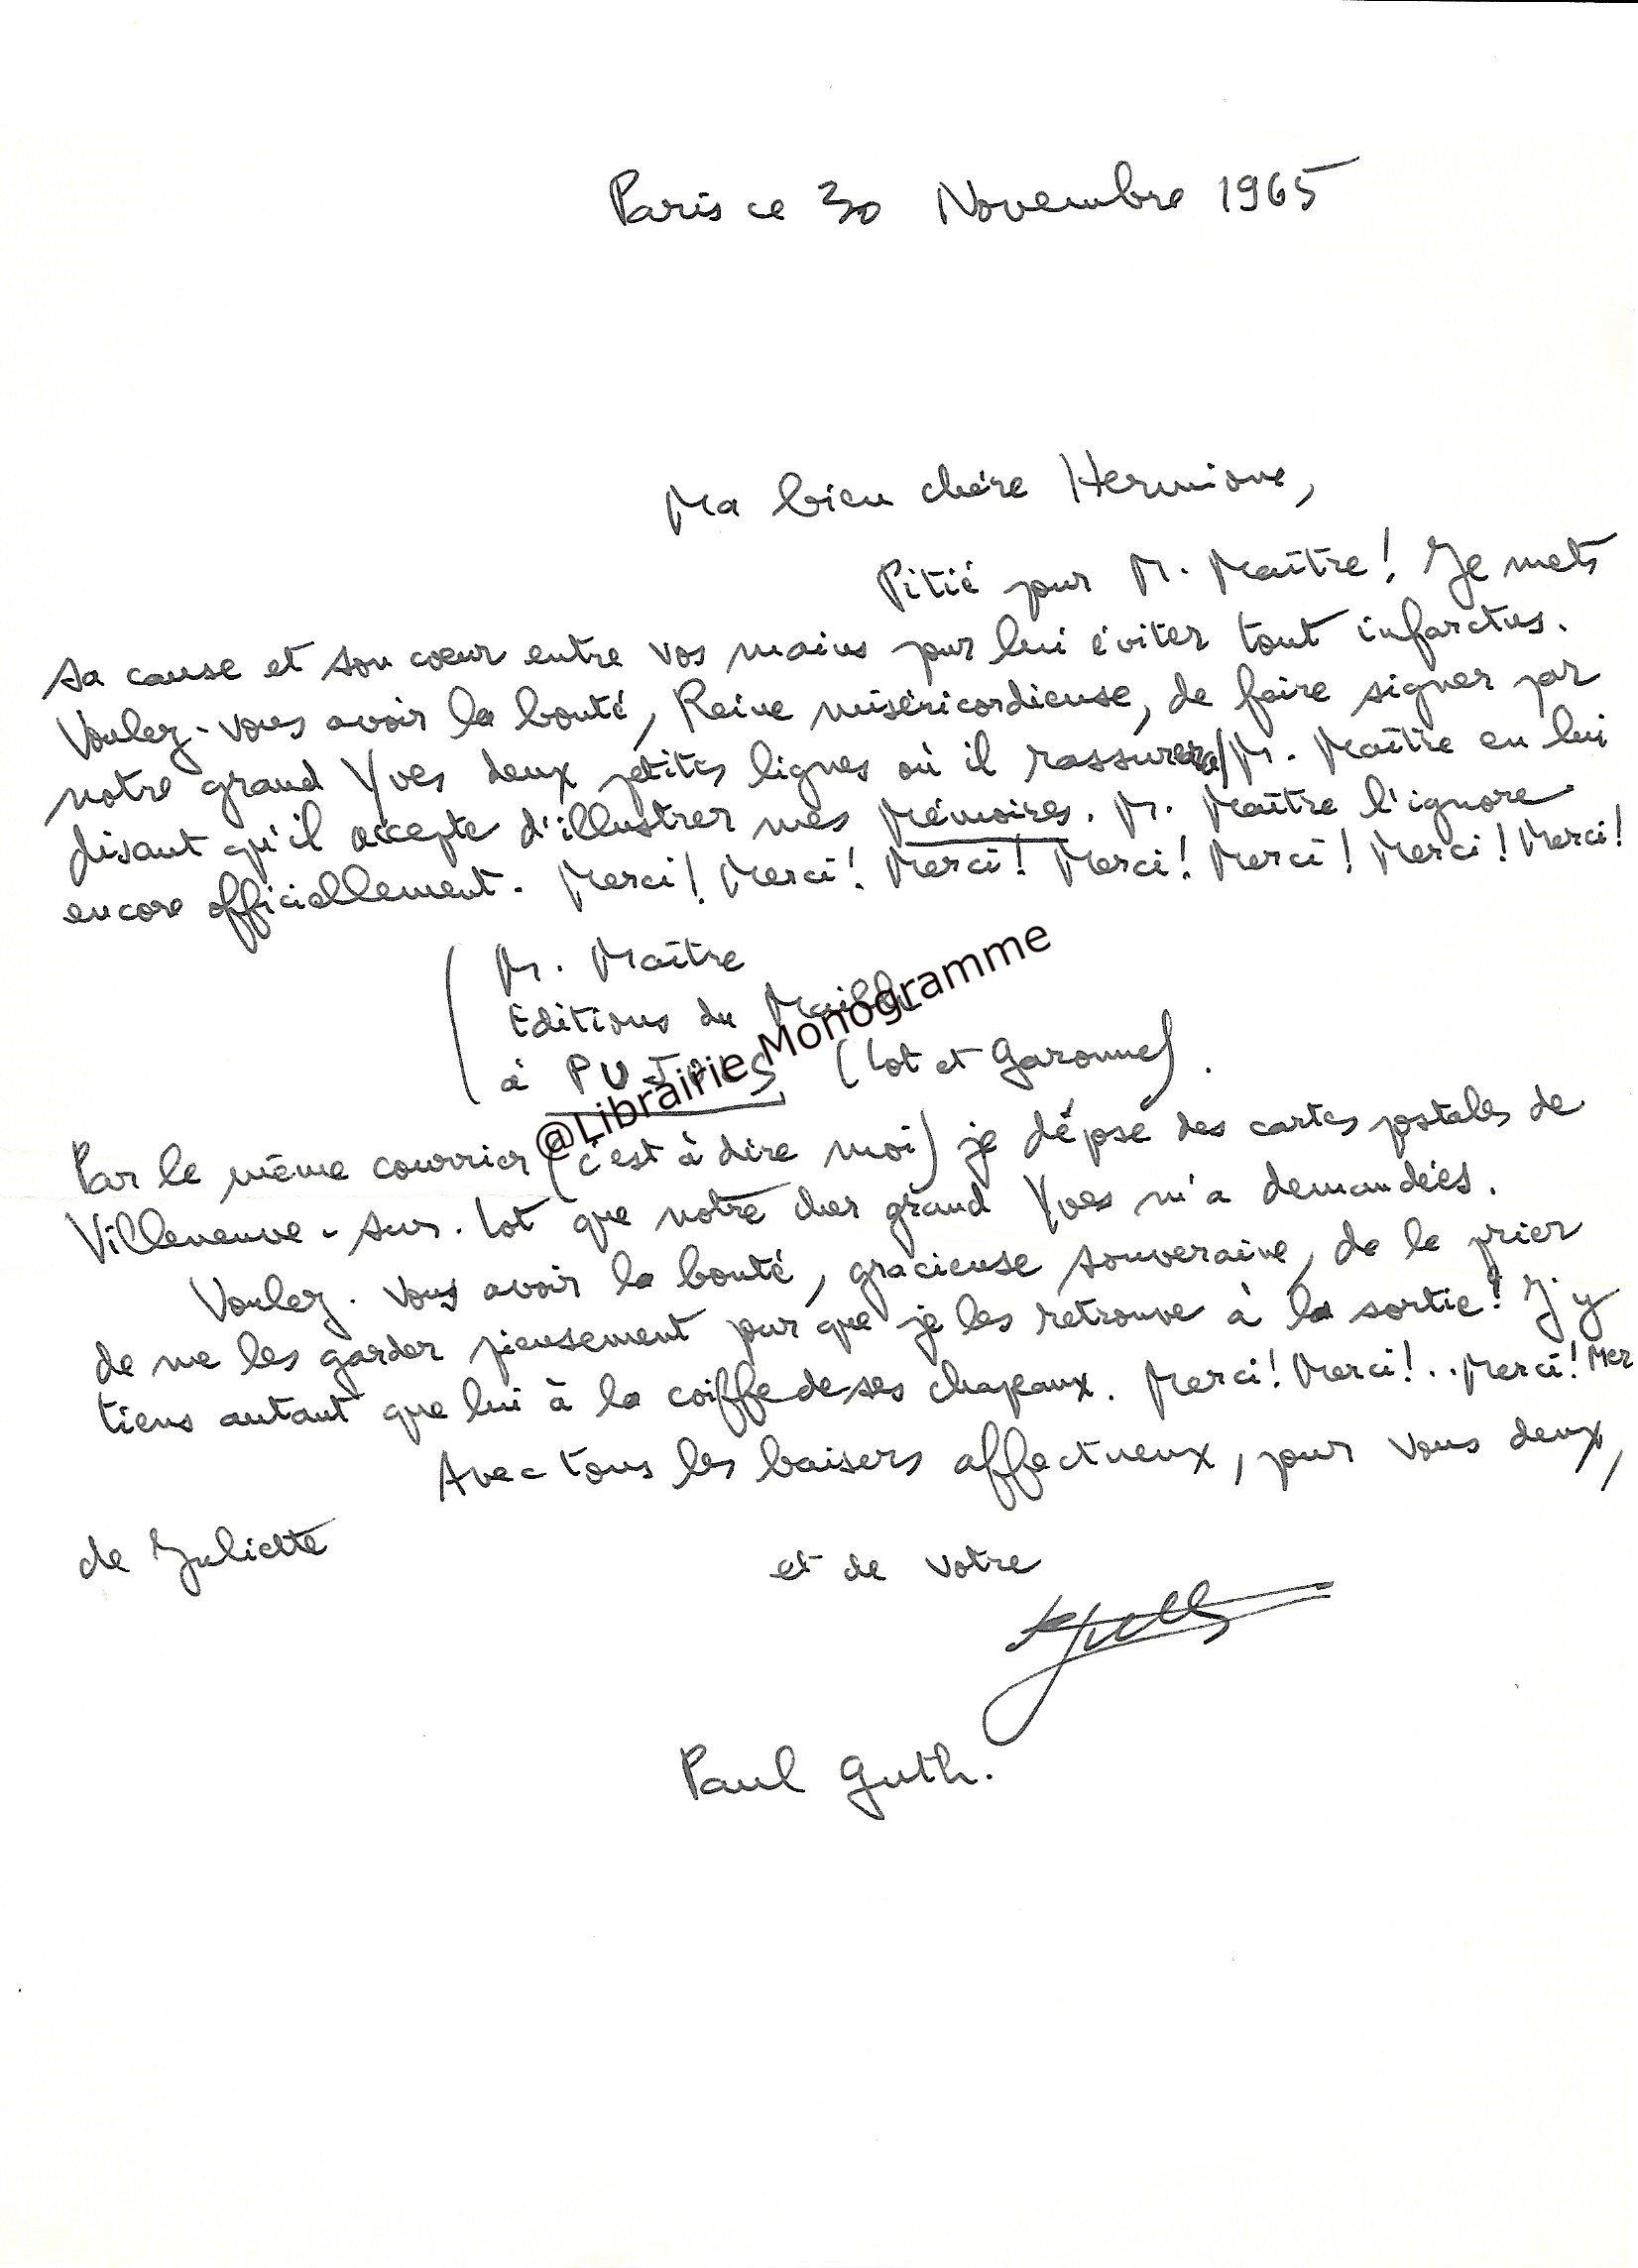 Paris ce 30 Novembre 1965
Ma bien chère Hermione,
Pitié pour M. Maître! Je mets
sa cause et son cœur entre vos mains pour lui éviter tout infarctus.
Voulez-vous avoir la bonté, Reine miséricordieuse, de faire signer par
notre grand Yves deux petites lignes où il rassurera M. Maître en lui
disant qu'il accepte d'illustrer mes Mémoires. M. Maître l'ignore
encore officiellement. Merci! Merci! Merci! Merci! Merci! Merci! Merci!
(M. Maître
Éditions du
à (Lot et Garonne).
@Librairie Monogramme
Par le même courrier (c'est à dire moi) je dépose des cartes postales de
Villeneuve-sur-Lot que notre cher grand Yves m'a demandées.
Voulez-vous avoir la bonté, gracieuse souveraine, de le prier
de me les garder pieusement pour que je les retrouve à la sortie! J'y
tiens autant que lui à la coiffe de ses chapeaux. Merci! Merci!.. Merci! Mer
Avec tous les baisers affectueux, pour vous deux,
de Juliette et de votre
Paul Guth.